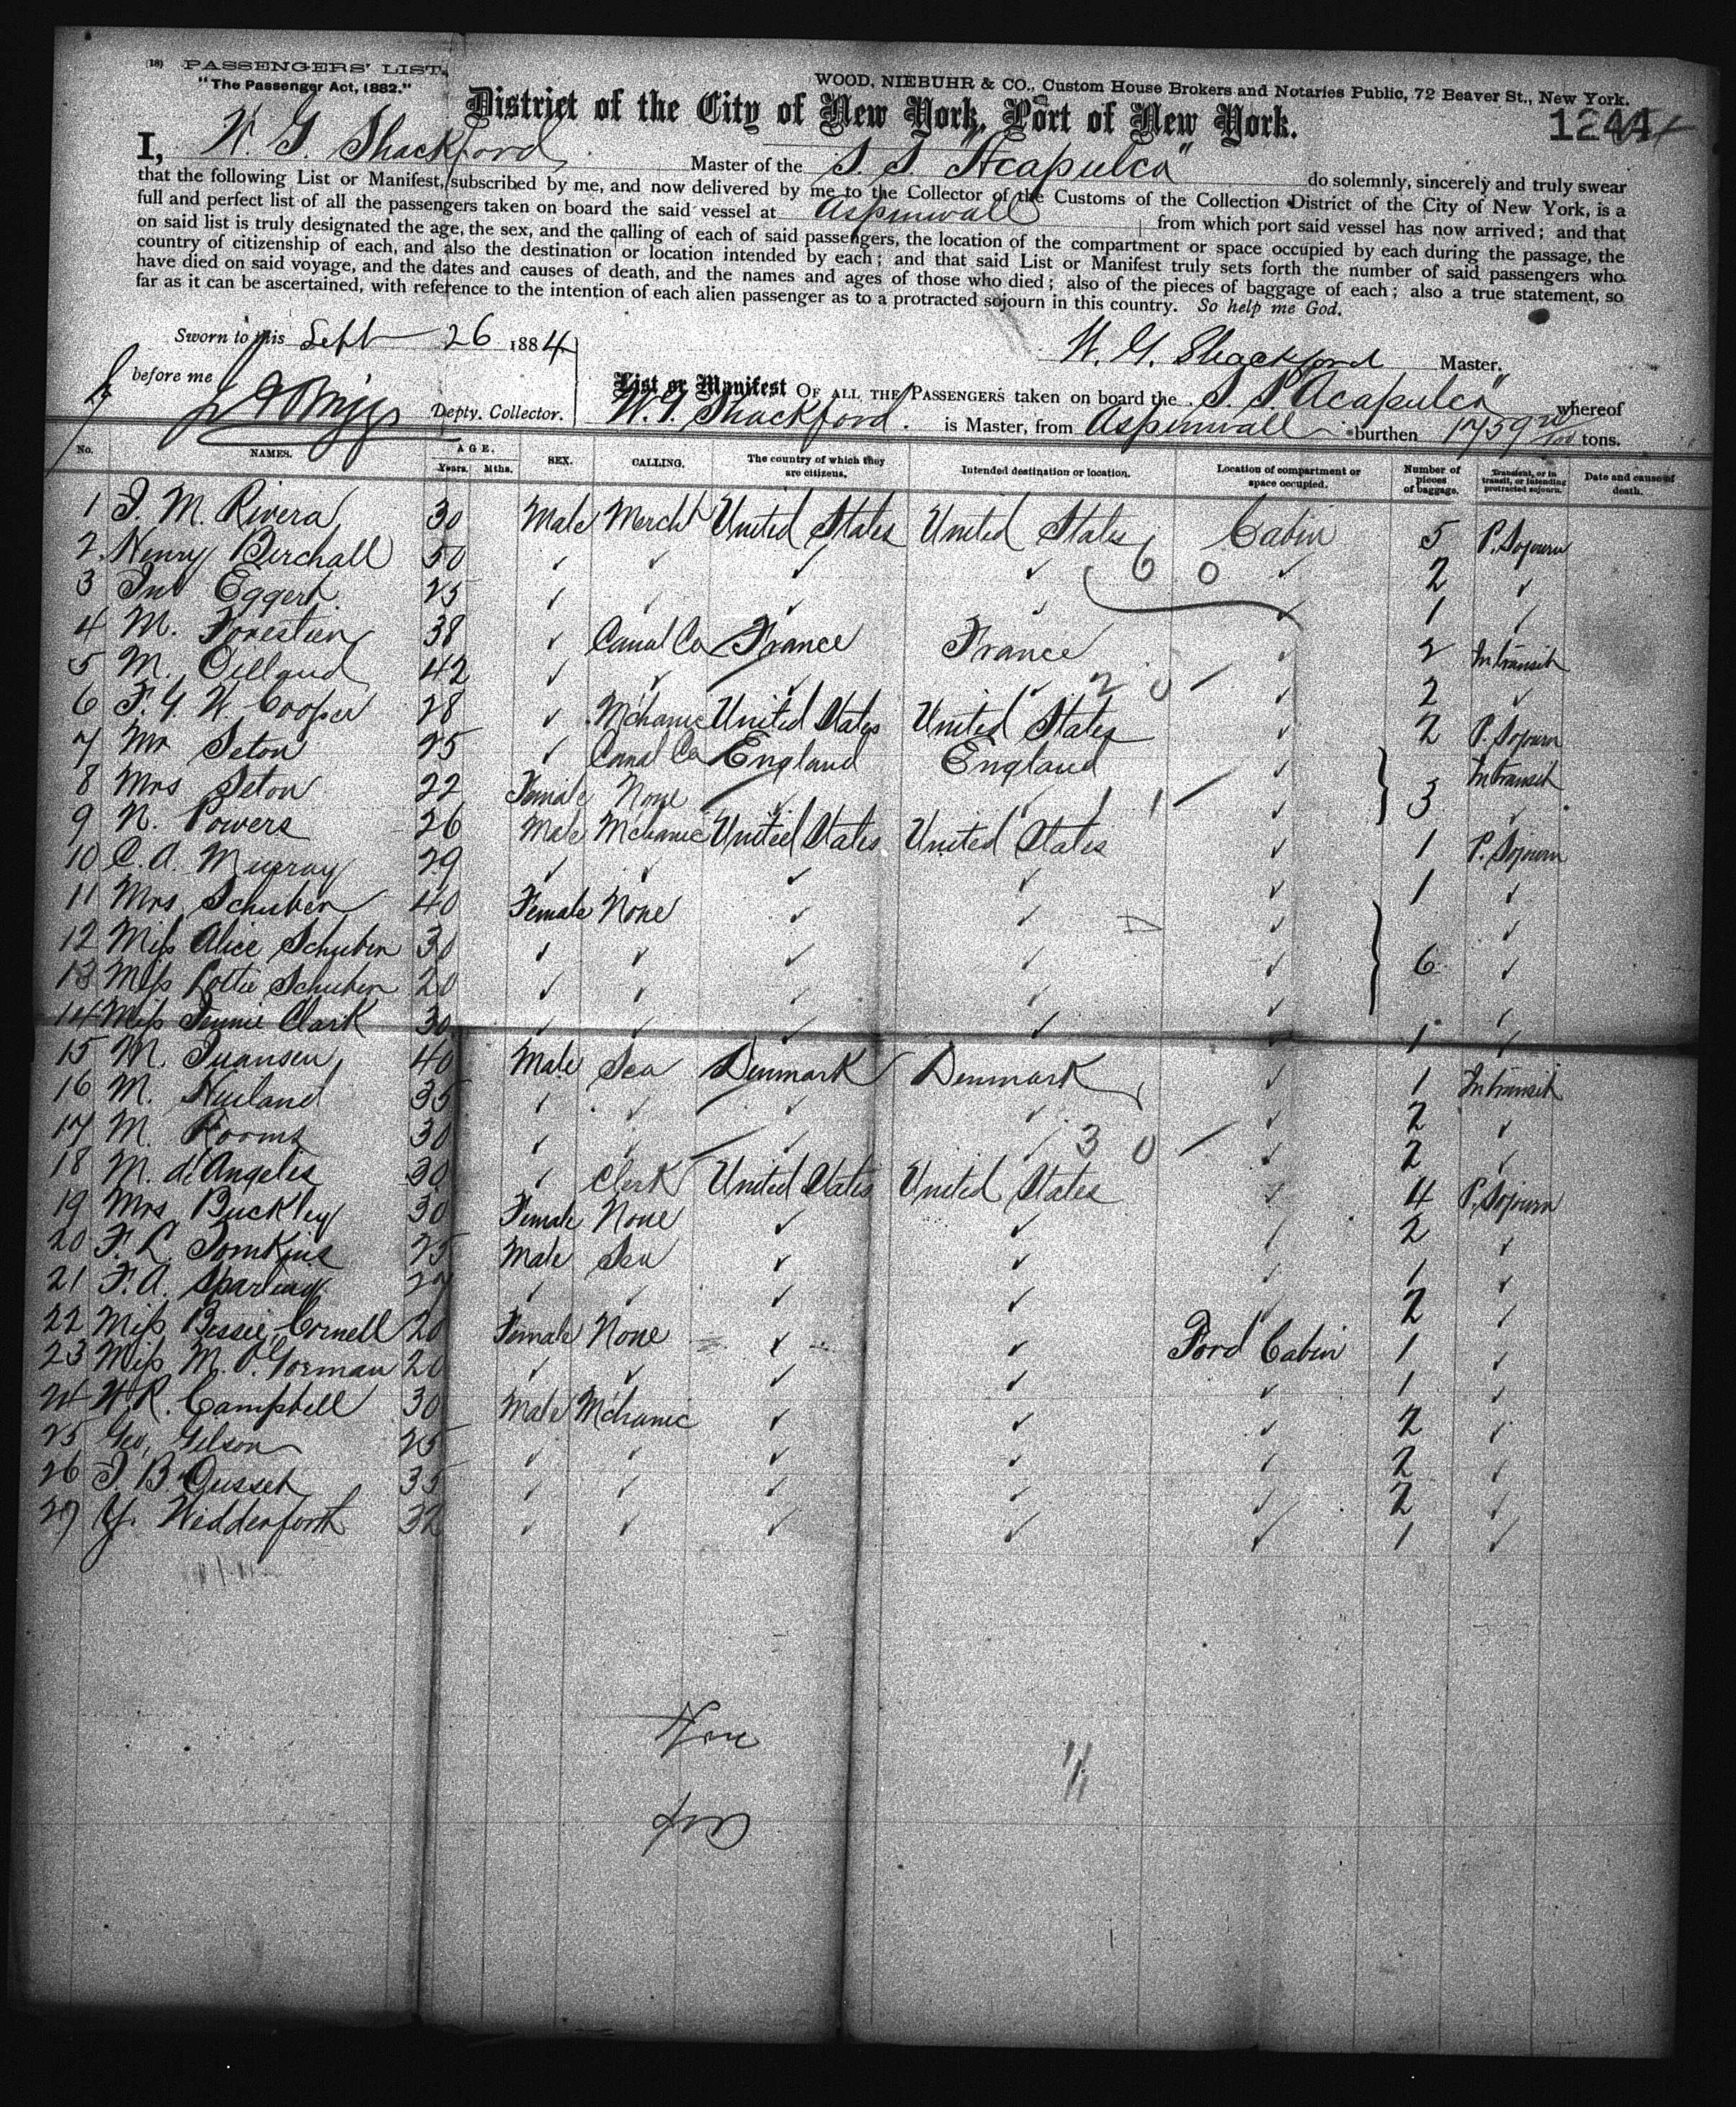 (18) PASSENGERS' LIST.
"The Passenger Act, 1882."
WOOD, NIEBUHR & CO., Custom House Brokers and Notaries Public, 72 Beaver St., New York.
District of the City of New York, Port of New York.
1244
I, W. G. Shackford, Master of the S. S. "Acapulco" do solemnly, sincerely and truly swear
that the following List or Manifest, subscribed by me, and now delivered by me to the Collector of the Customs of the Collection District of the City of New York, is a
full and perfect list of all the passengers taken on board the said vessel at Aspinwall from which port said vessel has now arrived; and that
on said list is truly designated the age, the sex, and the calling of each of said passengers, the location of the compartment or space occupied by each during the passage, the
country of citizenship of each, and also the destination or location intended by each; and that said List or Manifest truly sets forth the number of said passengers who
have died on said voyage, and the dates and causes of death, and the names and ages of those who died; also of the pieces of baggage of each; also a true statement, so
far as it can be ascertained, with reference to the intention of each alien passenger as to a protracted sojourn in this country. So help me God.
Sworn to this Sept 26 1884
W. G. Shackford Master.
before me Depty. Collector.
List or Manifest OF ALL THE PASSENGERS taken on board the S. S. "Acapulco" whereof
W. G. Shackford. is Master, from Aspinwall burthen 1759 /100 tons.
No. NAMES. AGE. Years. Mths. SEX. CALLING. The country of which they are citizens. Intended destination or location. Location of compartment or space occupied. Number of pieces of baggage. Transient, or in transit, or intending protracted sojourn. Date and cause of death.
1 J. M. Rivera 30 Male Mercht United States United States Cabin 5 P. Sojourn
2. Henry Birchall 50 ✓ ✓ ✓ ✓ 6 0 ✓ 2 ✓
3 Jno Eggert 25 ✓ ✓ ✓ ✓ ✓ 1 ✓
4 M. Forestier 38 ✓ Canal Co France France ✓ 2 In transit
5 M. 42 ✓ ✓ ✓ ✓ 2 0 ✓ 2 ✓
6 F. G. W. Cooper 28 ✓ Mchanic United States United States ✓ 2 P. Sojourn
7 Mr Seton 25 ✓ Canal Co England England ✓ In transit
8 Mrs Seton 22 Female None ✓ ✓ 1 1 ✓ 3 ✓
9 N. Powers 26 Male Mchanic United States United States ✓ 1 P. Sojourn
10 C. A. Murray 29 ✓ ✓ ✓ ✓ ✓ 1 ✓
11 Mrs Schuber 40 Female None ✓ ✓ ✓ ✓
12 Miss Alice Schuber 30 ✓ ✓ ✓ ✓ ✓ 6 ✓
13 Miss Lottie Schuber 20 ✓ ✓ ✓ ✓ ✓ ✓
14 Miss Jennie Clark 30 ✓ ✓ ✓ ✓ ✓ 1 ✓
15 M. 40 Male Sea Denmark Denmark ✓ 1 In transit
16 M. 35 ✓ ✓ ✓ ✓ ✓ 2 ✓
17 M. 30 ✓ ✓ ✓ ✓ 3 0 ✓ 2 ✓
18 M. d'Angelis 30 ✓ Clerk United States United States ✓ 4 P. Sojourn
19 Mrs Buckley 30 Female None ✓ ✓ ✓ 2 ✓
20 F. L. Tomkins 25 Male Sea ✓ ✓ ✓ 1 ✓
21 F. A. 27 ✓ ✓ ✓ ✓ ✓ 2 ✓
22 Miss Bessie Cornell 20 Female None ✓ ✓ Ford Cabin 1 ✓
23 Miss M. O'Gorman 20 ✓ ✓ ✓ ✓ ✓ 1 ✓
24 W. R. Campbell 30 Male Mchanic ✓ ✓ ✓ 2 ✓
25 Geo. Gelson 25 ✓ ✓ ✓ ✓ ✓ 2 ✓
26 J. B. Gusset 35 ✓ ✓ ✓ ✓ ✓ 2 ✓
27 Y. Wedderforth 32 ✓ ✓ ✓ ✓ ✓ 1 ✓